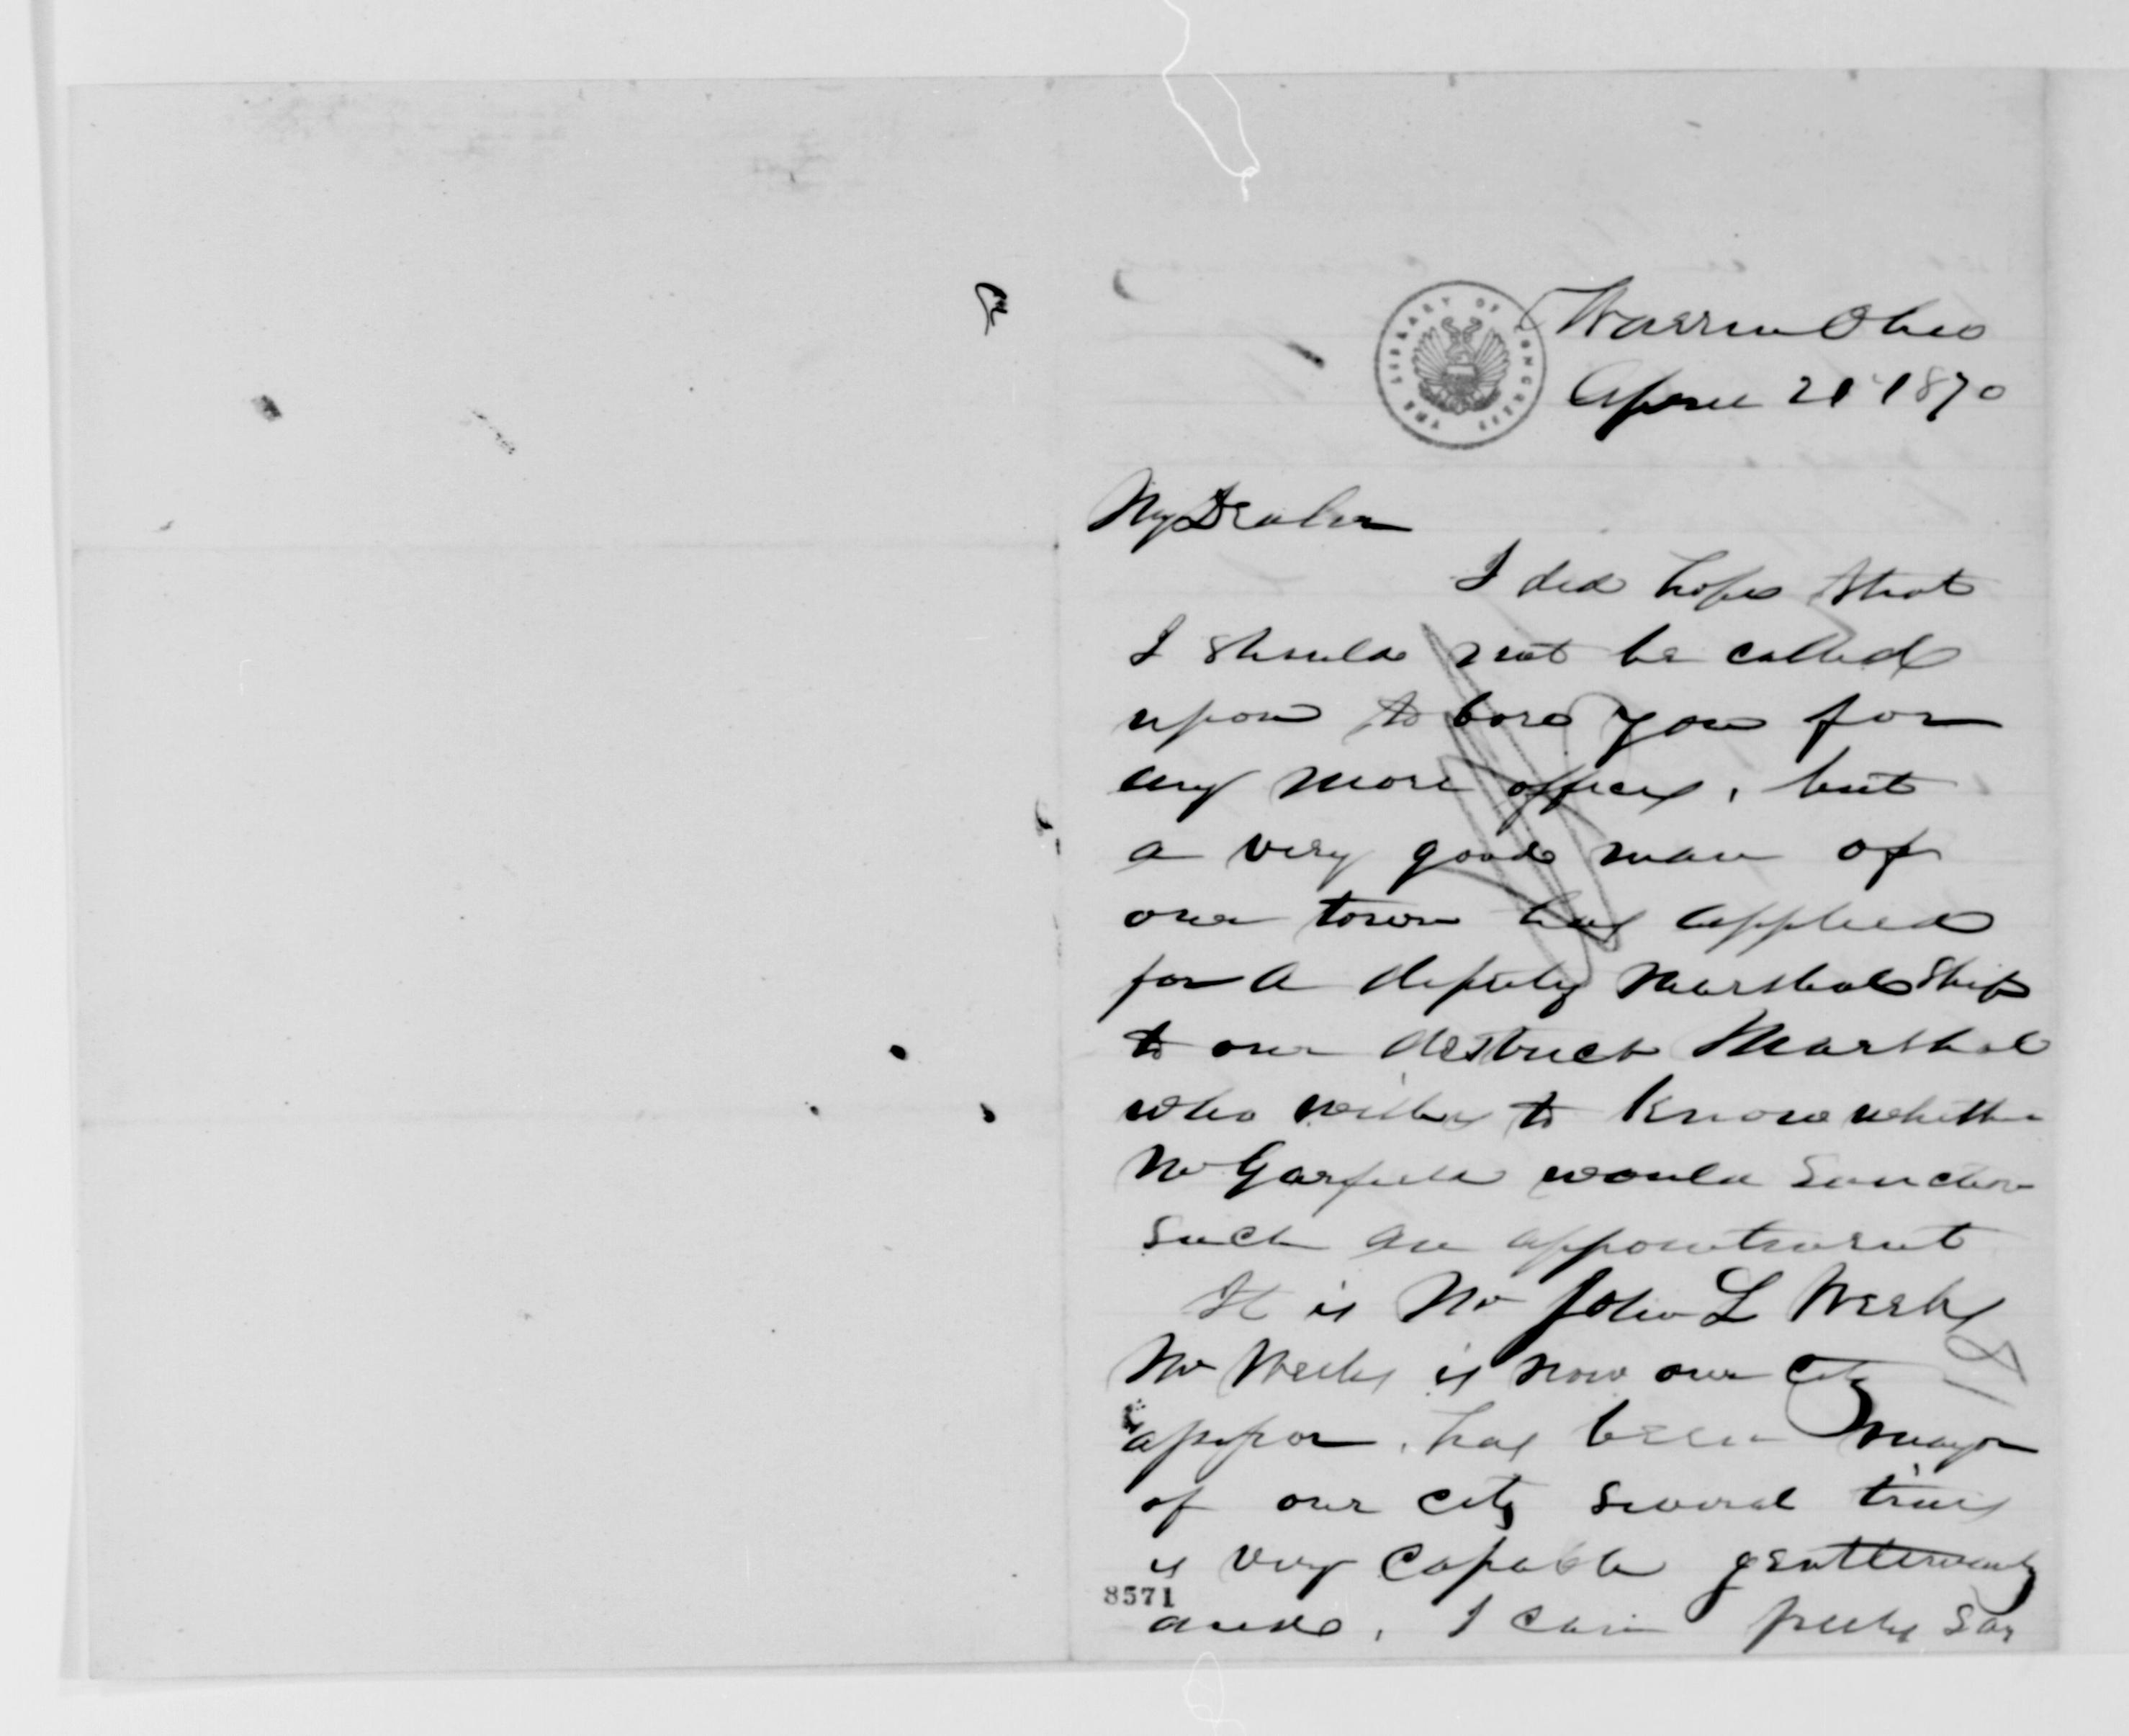 THE LIBRARY OF CONGRESS
Warren Ohio
April 21 1870
My Dear Sir
I did hope that
I should not be called
upon to bore you for
any more offices, but
a very good man of
our town has applied
for a deputy Marshalship
to our destrict Marshal
who wishes to know whether
Mr Garfield would sanction
such an appointment
It is Mr John L Weeks
Mr Weeks is now our City
assessor, has been mayor
of our city several times
is very capable gentlemanly
and, I can freely say
8571